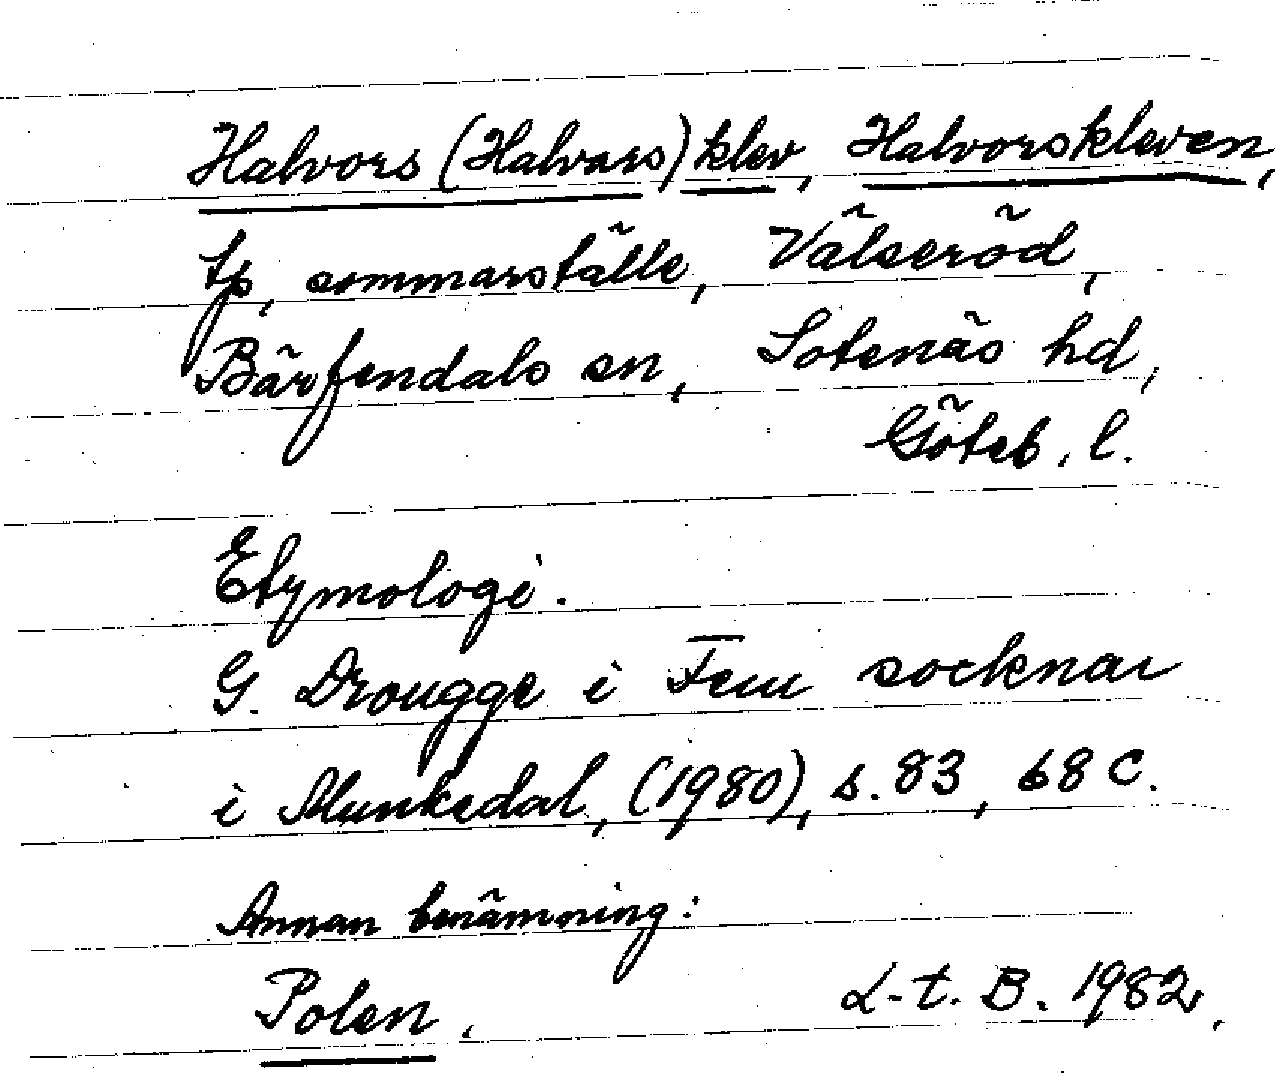 Halvors (Halvars) klev, Halvorskleven,
tp, sommarställe, Välseröd,
Bärfendals sn, Sotenäs hd,
Göteb. l.
Etymologi.
G. Drougge i Fem socknar
i Munkedal, (1980), s. 83, 68 C.
Annan benämning:
Polen. L-t. B. 1982.